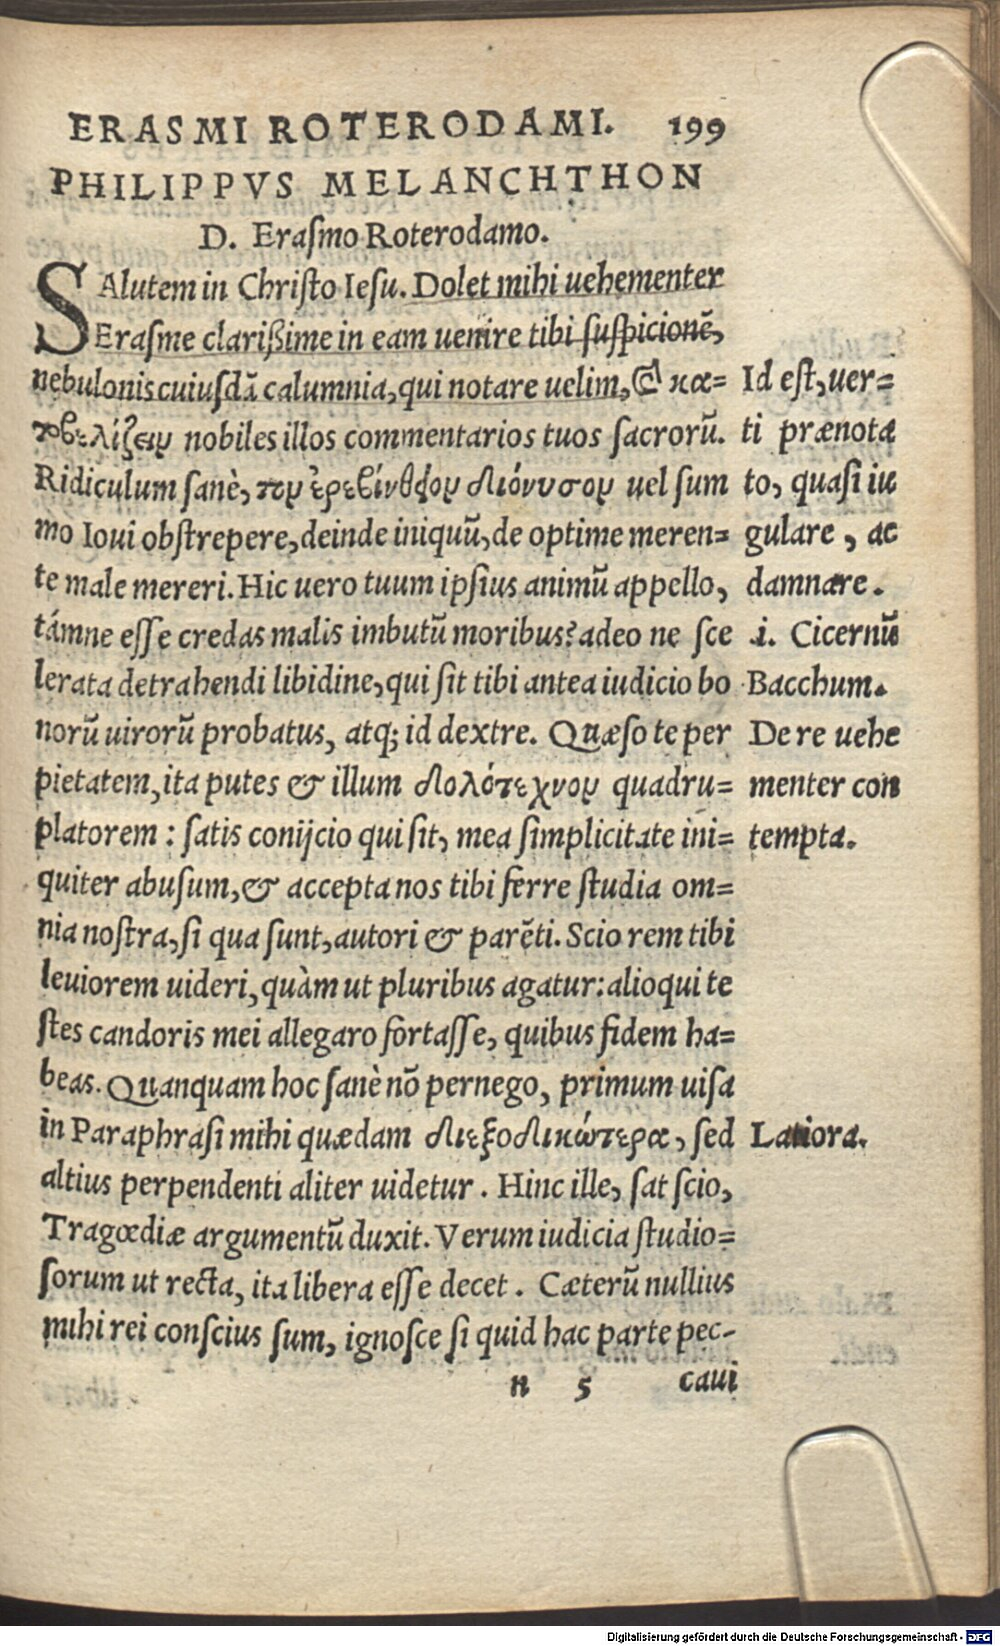 ERASMI ROTERODAMI. 199
PHILIPPVS MELANCHTHON
D. Eraſmo Roterodamo.
SAlutem in Chriſto Ieſu. Dolet mihi uehementer
Eraſme clarißime in eam uenire tibi ſuſpicionē,
nebulonis cuiuſdā calumnia, qui notare uelim, & κα=
τοβελίζειν nobiles illos commentarios tuos ſacrorū.
Ridiculum ſanè, τὸν ἐρεβίνθινον διόνυσον uel ſum
mo Ioui obſtrepere, deinde iniquū, de optime meren=
te male mereri. Hic uero tuum ipſius animū appello,
támne eſſe credas malis imbutū moribus? adeo ne ſce
lerata detrahendi libidine, qui ſit tibi antea iudicio bo
norū uirorū probatus, atq; id dextre. Quæſo te per
pietatem, ita putes & illum δολότεχνον quadru=
platorem : ſatis conijcio qui ſit, mea ſimplicitate ini=
quiter abuſum, & accepta nos tibi ferre ſtudia om=
nia noſtra, ſi qua ſunt, autori & parēti. Scio rem tibi
leuiorem uideri, quàm ut pluribus agatur: alioqui te
ſtes candoris mei allegaro fortaſſe, quibus fidem ha=
beas. Quanquam hoc ſanè nō pernego, primum uiſa
in Paraphraſi mihi quædam διεξοδικώτερα, ſed
altius perpendenti aliter uidetur. Hinc ille, ſat ſcio,
Tragœdiæ argumentū duxit. Verum iudicia ſtudio=
ſorum ut recta, ita libera eſſe decet. Cæterū nullius
mihi rei conſcius ſum, ignoſce ſi quid hac parte pec-
n 5 caui
Id eſt, uer=
ti prænota
to, quaſi iu
gulare, ac
damnare.
.i. Cicernū
Bacchum.
De re uehe
menter con
tempta.
Latiora.
Digitalisierung gefördert durch die Deutsche Forschungsgemeinschaft - DFG